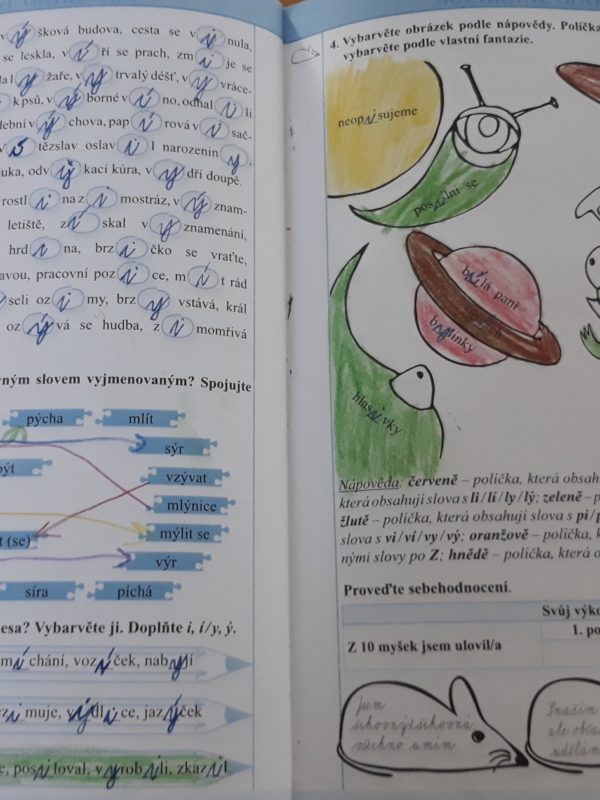 výšková budova, cesta se vinula,
se leskla, víří se prach, zmije se
lyžaře, vytrvalý déšť, vyvráce-
k psů, výborné víno, odhalili
výchova, papírová vi sač-
oslavil narozeniny,
odvykací kúra, vydří doupě.
rostlina z mostráz, význam-
letiště, získal vyznamenání,
hrdina, brzičko se vraťte,
pracovní pozice, mít rád
seli ozimy, brzy vstává, král
ozývá se hudba, zimomřivá
slovem vyjmenovaným? Spojujte
pýcha
mlít
sýr
být
vzývat
mlýnice
mýlit se
t (se)
výr
síra
píchá
esa? Vybarvěte ji. Doplňte i, í/y, ý.
míchání, vozíček, nabyjí
zimuje, výdlice, jazýček
posiloval, vyrobili, zkazit
4. Vybarvěte obrázek podle nápovědy. Políčka
vybarvěte podle vlastní fantazie.
neopisujeme
posilni se
bílá paní
bylinky
hlasivky
Nápověda: červeně – políčka, která obsah
která obsahují slova s li/lí/ly/lý; zeleně – p
žlutě – políčka, která obsahují slova s pi/p
slova s vi/ví/vy/vý; oranžově – políčka, k
nými slovy po Z; hnědě – políčka, která o
Proveďte sebehodnocení.
Svůj výko
1. po
Z 10 myšek jsem ulovil/a
Jsem
šikovný/šikovná,
všechno umím.
Snažím
ale obča
udělám